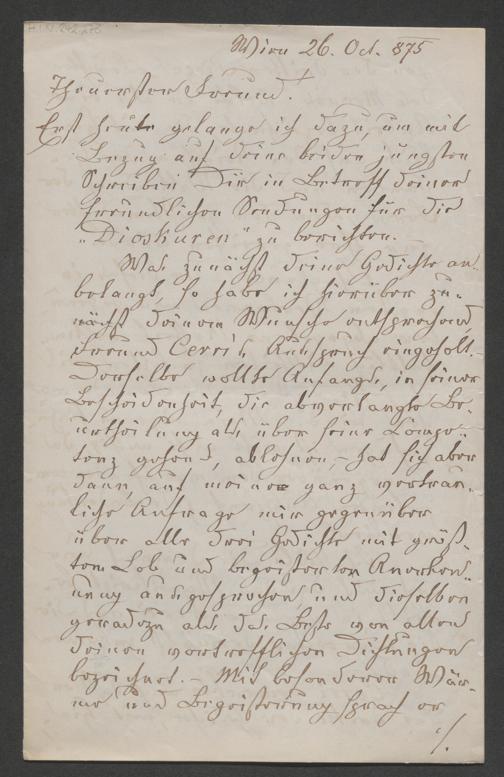 Wien 26. Oct. 875
Theuerster Freund!
Erst heute gelange ich dazu, um mit
Bezug auf deine beiden jüngsten
Schreiben Dir in Betreff deiner
freundlichen Sendungen für die
„Dioskuren" zu berichten. –
Was zunächst deine Gedichte an-
belangt, so habe ich hierüber zu-
nächst deinem Wunsche entsprechend,
Freund Cerri's Ausspruch eingeholt. –
Derselbe wollte Anfangs, in seiner
Bescheidenheit, die abverlangte Be-
urtheilung als über seine Compe-
tenz gehend, ablehnen, – hat sich aber
dann, auf meine ganz vertrau-
liche Anfrage mir gegenüber
über alle drei Gedichte mit größ-
tem Lob und begeisterter Anerken-
nung ausgesprochen und dieselben
geradezu als das Beste von allen
deinen vortrefflichen Dichtungen
bezeichnet. – Mit besonderer Wär-
me und Begeisterung sprach er
./.